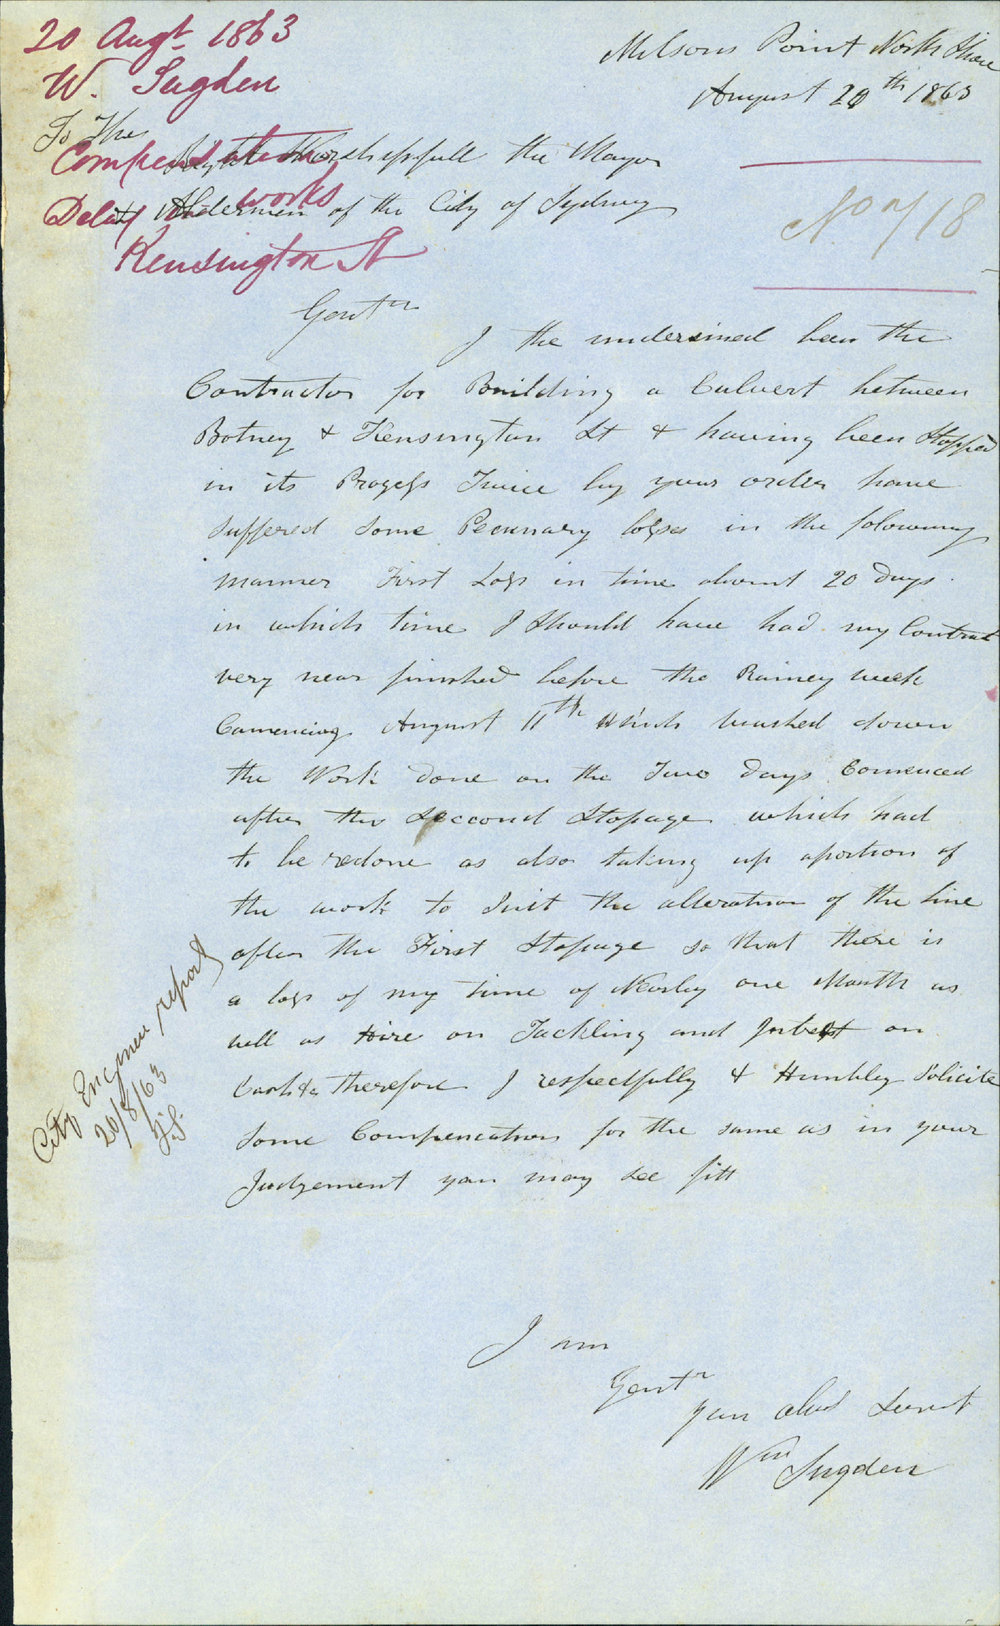 20 Augt 1863
W. Sugden
Compensation
Delay works
Kensington St
Milsons Point North Shore
August 20th 1863
To The
Right Worshipfull the Mayor
& Aldermen of the City of Sydney
No 7/18
Gentn
I the undersined been the
Contractor for Building a Culvert between
Botney & Kensington St & having been Stopped
in its Progess Twice by your order have
suffered some Pecunary losses in the folowing
manner First Loss in time about 20 days
in which time I Should have had my Contract
very near finished before the Rainey week
Camencing August 11th Which washed down
the Work done on the Two days Comenced
after the Seccond Stopage which had
to be redone as also taking up aportion of
the work to Suit the alteration of the line
after the First Stopage so that there is
a loss of my time of Nearley one Month as
well as Hire on Tackling and Intrest on
Cash &c therefore I respectfully & Humbley Solicite
Some Compencation for the same as in your
Judgement you may see fitt
City Engineer report
20/8/63
I am
Gentn
your obed Servt
Wm Sugden